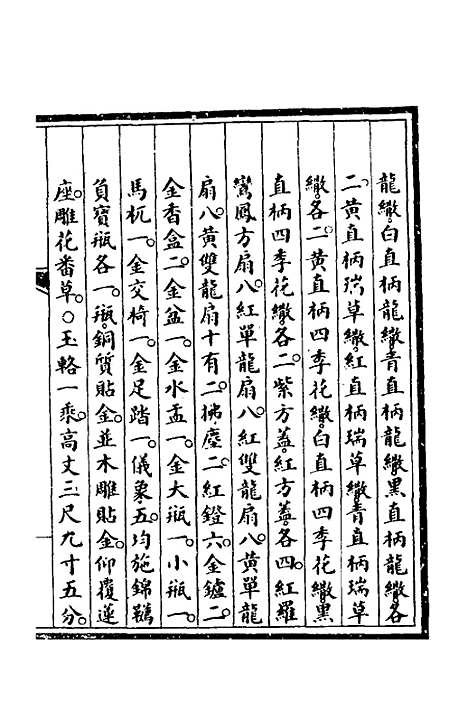 龍繖。白直柄龍繖。青直柄龍繖。黑直柄龍繖。各
二。黃直柄瑞草繖。紅直柄瑞草繖。青直柄瑞草
繖。各二。黃直柄四季花繖。白直柄四季花繖。黑
直柄四季花繖。各二。紫方蓋。紅方蓋。各四。紅羅
鸞鳳方扇八。紅單龍扇八。紅雙龍扇八。黃單龍
扇八。黃雙龍扇十有二。拂塵二。紅鐙六。金鑪二。
金香盒二。金盆一。金水盂一。金大瓶一。小瓶一。
馬杌一。金交椅一。金足踏一。儀象五。均施錦韉
負寶瓶各一。瓶。銅質貼金。並木雕貼金。仰覆蓮
座。雕花番草。○玉輅一乘。高丈三尺九寸五分。